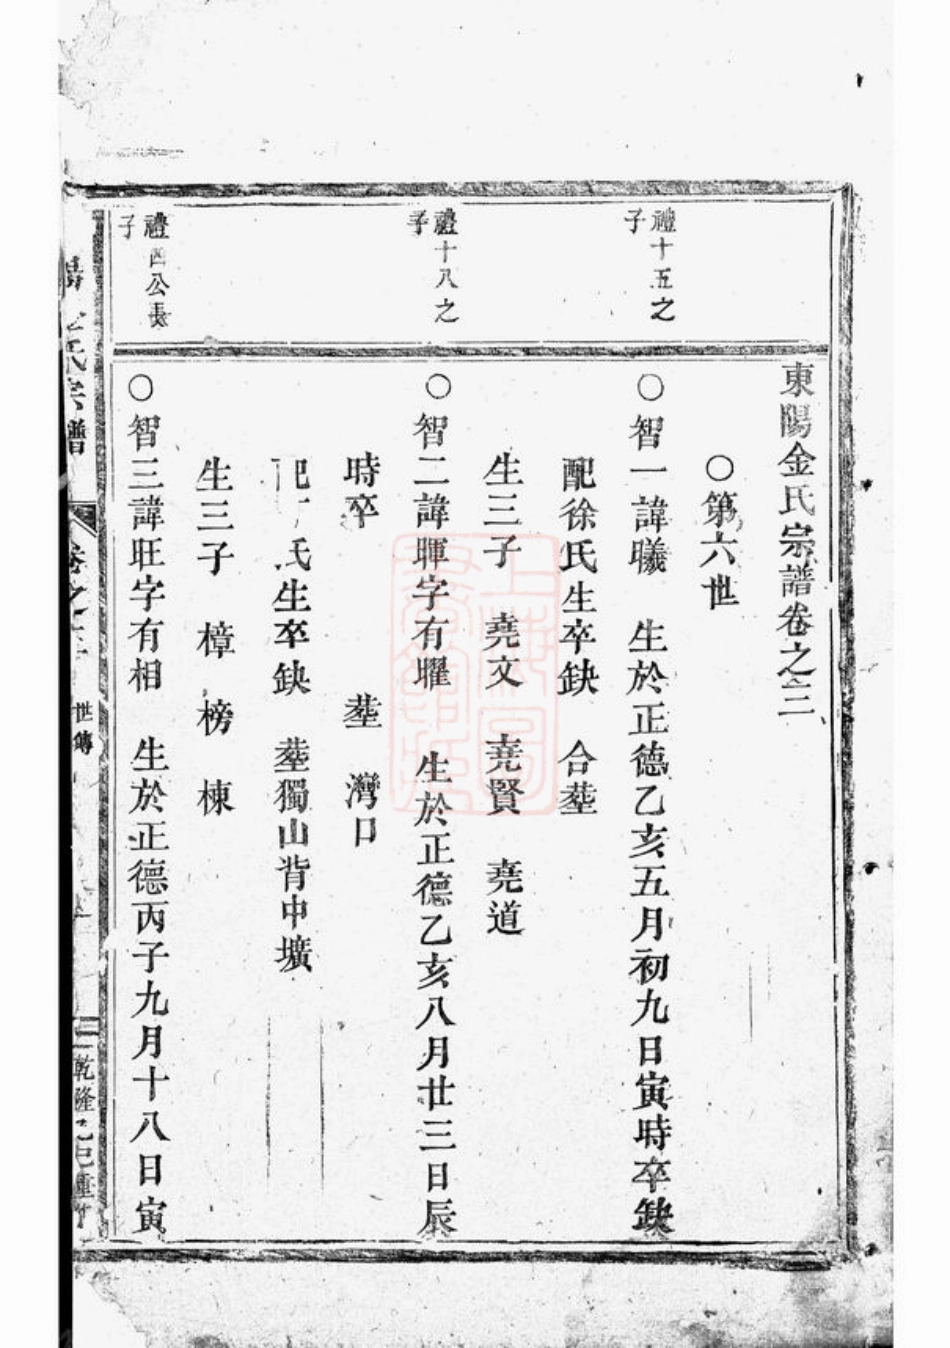 東陽金氏宗譜卷之三
○第六世
禮十五之
子
○智一諱曦 生於正德乙亥五月初九日寅時卒缺
配徐氏生卒缺 合塟
生三子 堯文 堯賢 堯道
禮十八之
子
○智二諱暉字有曜 生於正德乙亥八月廿三日辰
時卒 塟 灣口
氏生卒缺 塟獨山背中壙
生三子 樟 榜 棟
禮四公長
子
○智三諱旺字有相 生於正德丙子九月十八日寅
氏宗譜
卷之
世傳
乾隆